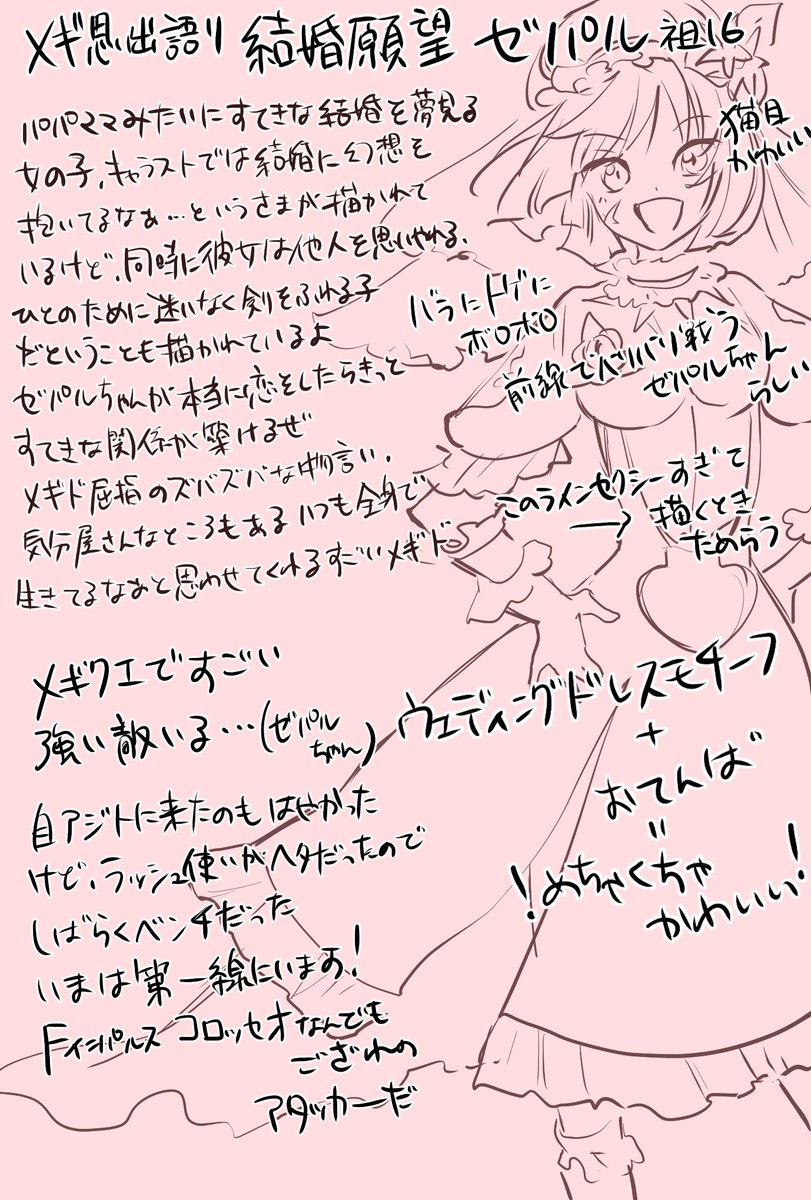 メギ思出語り 結婚願望 ゼパル 祖16
パパママみたいにすてきな結婚を夢見る
女の子、キャラストでは結婚に幻想を
抱いてるなぁ…というさまが描かれて
いるけど、同時に彼女は他人を思いやれる、
ひとのために迷いなく剣をふれる子
だということも描かれているよ
ゼパルちゃんが本当に恋をしたらきっと
すてきな関係が築けるぜ
メギド屈指のズバズバな物言い、
気分屋さんなところもある いつも全身で
生きてるなあと思わせてくれるすごいメギド
猫目
かわいい
バラにトゲに
ボロボロ
前線でバリバリ戦う
ゼパルちゃん
らしい
このラインセクシーすぎて
→ 描くとき
ためらう
メギクエですごい
強い敵いる…(ゼパル
ちゃん)
ウェディングドレスモチーフ
+
おてんば
=
!めちゃくちゃ
かわいい!
自アジトに来たのもはやかった
けど、ラッシュ使いがヘタだったので
しばらくベンチだった
いまは第一線にいます!
Fインパルス コロッセオなんでも
ござれの
アタッカーだ